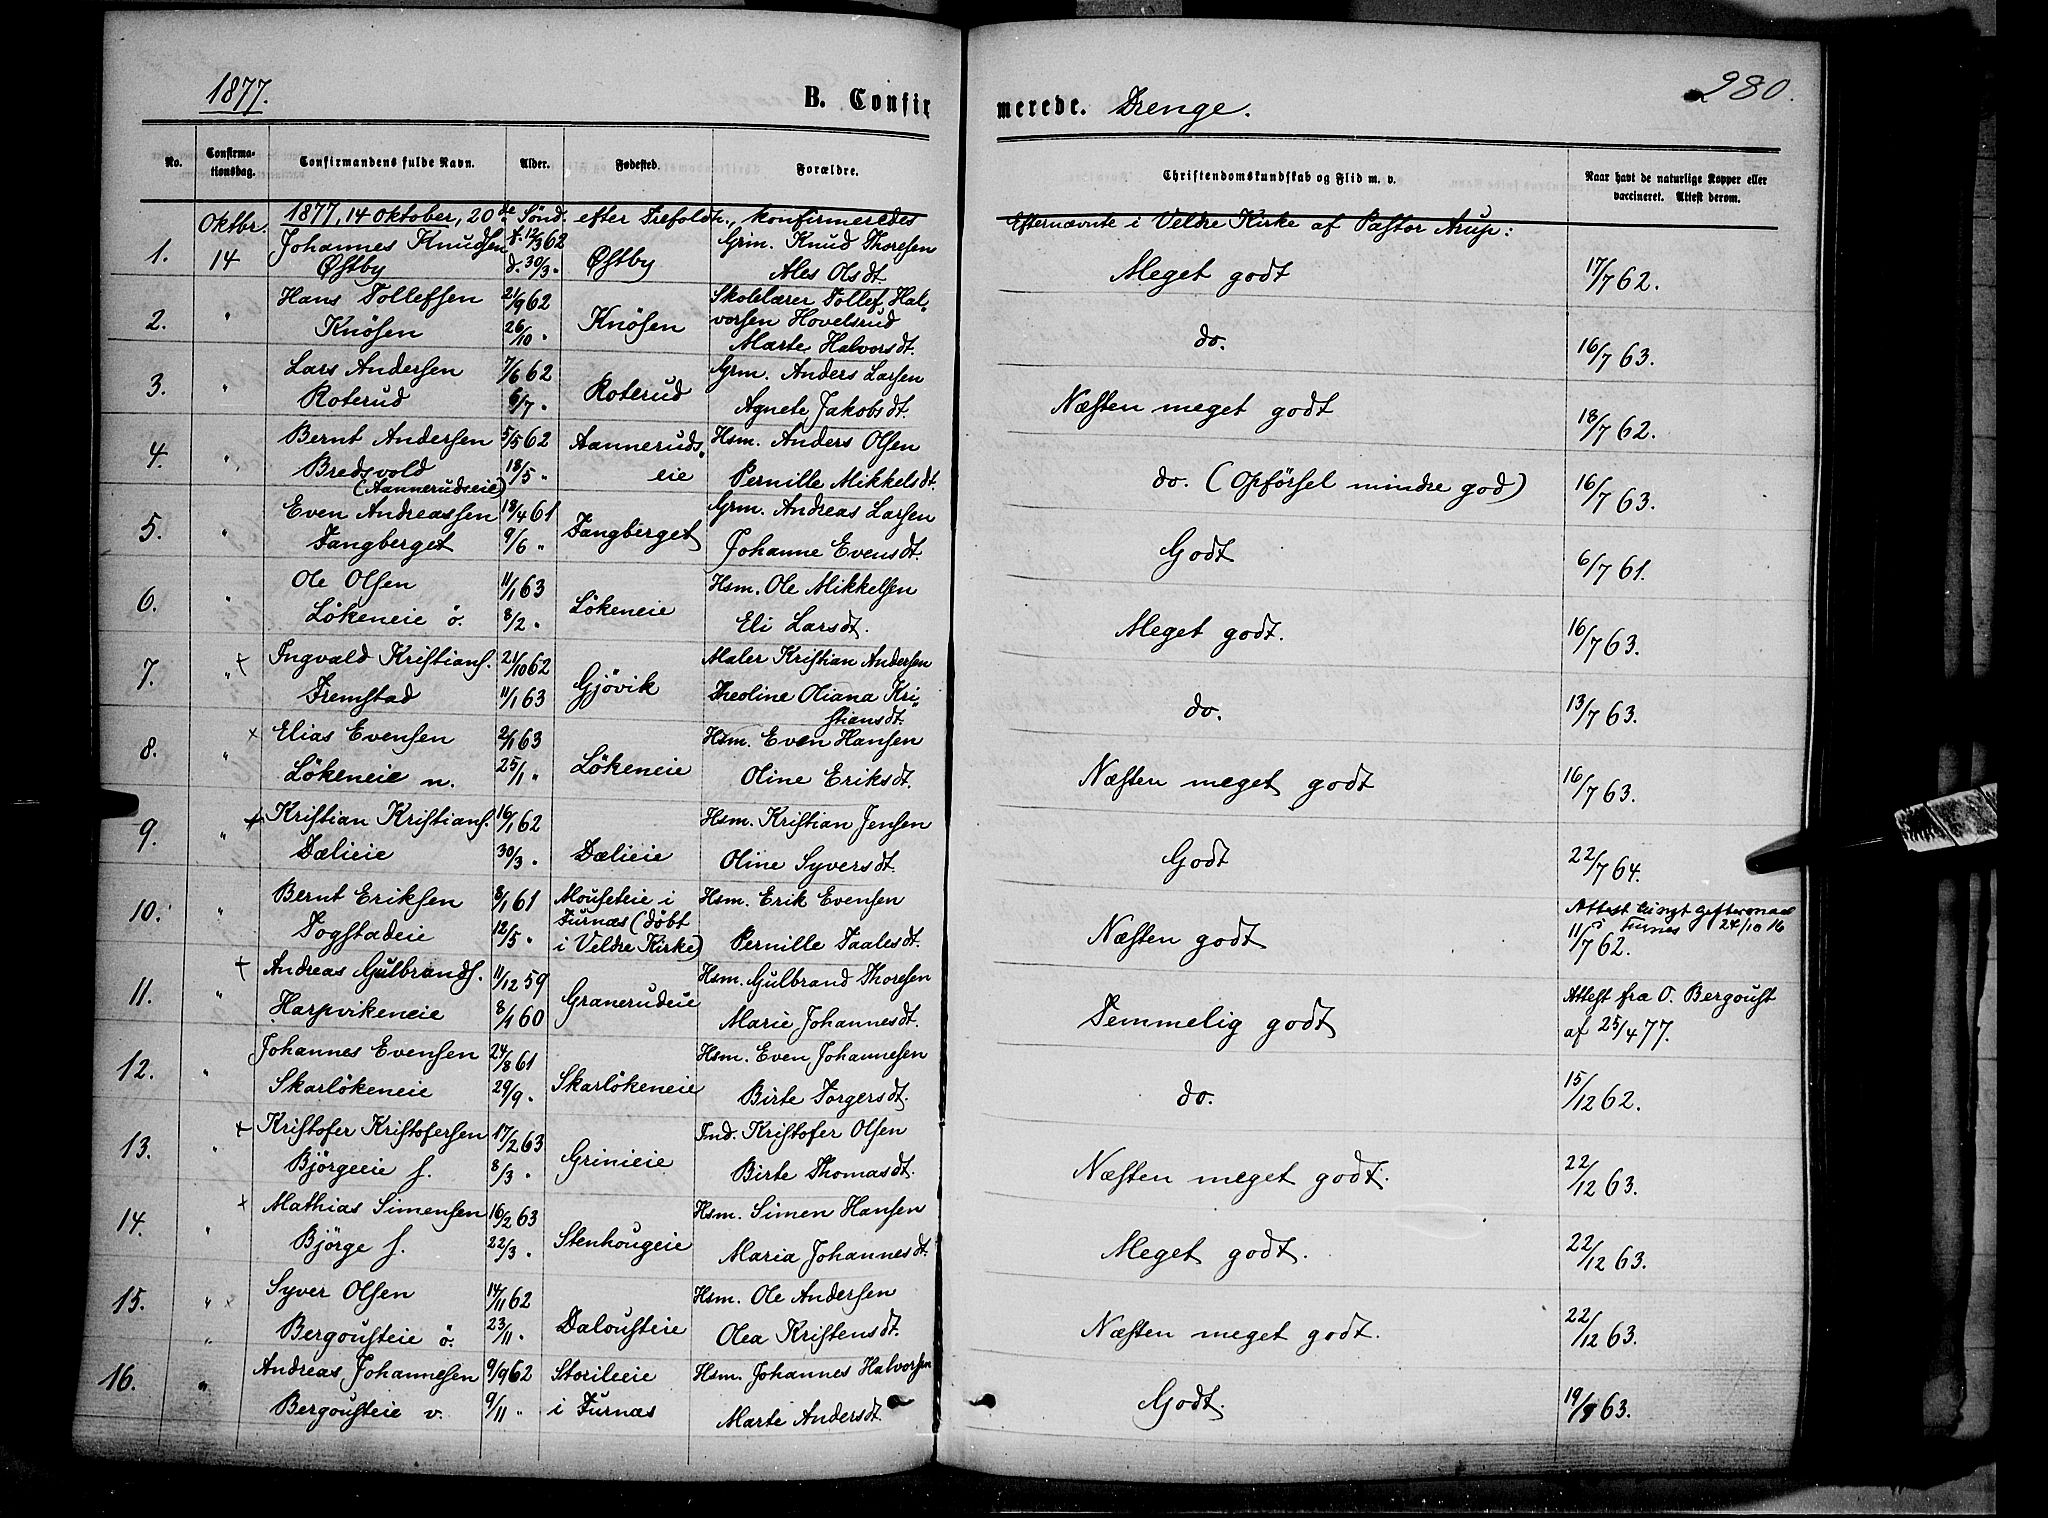 1877.
B. Confir
merede. Drenge.
280.
No.
Confirma-
tionsdag.
Confirmandens fulde Navn.
Alder.
Fødested.
Forældre.
Christendomskundskab og Flid m. v.
Naar havt de naturlige Kopper eller
vaccineret. Attest derom.
Oktbr. 1877, 14 Oktober, 20de Sönd. efter Trefoldh., konfirmeredes Efternævnte i Veldre Kirke af Pastor Arup:
1. 14 Johannes Knudsen f. 12/3 62 Østby Grm. Knud Thoresen Meget godt 17/7 62.
Østby d. 30/3 " Ales Olsdt.
2. " Hans Tollefsen 21/9 62 Knösen Skolelærer Tollef Hal-
Knösen 26/10 " vorsen Hovelsrud do. 16/7 63.
Marte Halvorsdt.
3. " Lars Andersen 7/6 62 Roterud Grm. Anders Larsen
Roterud 6/7 " Agnete Jakobsdt. Næsten meget godt 18/7 62.
4. " Bernt Andersen 5/5 62 Aanneruds- Hsm. Anders Olsen
Bredsvold 18/5 " eie Pernille Mikkelsdt. do. (Opförsel mindre god) 16/7 63.
(Aannerudseie)
5. " Even Andreassen 18/4 61 Fangberget Grm. Andreas Larsen
Fangberget 9/6 " Johanne Evensdt. Godt 6/7 61.
6. " Ole Olsen 11/1 63 Lökeneie Hsm. Ole Mikkelsen
Lökeneie ö. 8/2 " Eli Larsdt. Meget godt. 16/7 63.
7. " + Ingvald Kristians. 21/10 62 Gjövik Maler Kristian Andersen
Fremstad 11/1 63 Theoline Oliana Kri- do. 13/7 63.
stiansdt.
8. " x Elias Evensen 2/1 63 Lökeneie Hsm. Even Hansen
Lökeneie n. 25/1 " Oline Eriksdt. Næsten meget godt 16/7 63.
9. " + Kristian Kristians. 16/1 62 Dælieie Hsm. Kristian Jensen
Dælieie 30/3 " Oline Syversdt. Godt 22/7 64.
10. " Bernt Eriksen 8/1 61 Mouseteie i Hsm. Erik Evensen
Togstadeie 12/5 " Furnæs (döbt Pernille Paalesdt. Næsten godt
i Veldre Kirke) 11/7 62.
i Furnes 24/10 16
11. " + Andreas Gulbrands. 11/12 59 Granerudeie Hsm. Gulbrand Thoresen Attest fra O. Bergoust
Harpvikeneie 8/1 60 Marie Johannesdt. Temmelig godt af 25/4 77.
12. " Johannes Evensen 24/8 61 Skarlökeneie Hsm. Even Johannesen
Skarlökeneie 29/9 " Birte Torgersdt. do. 15/12 62.
13. " + Kristofer Kristofersen 17/2 63 Grinieie Ind. Kristofer Olsen
Björgeie s. 8/3 " Birte Thomasdt. Næsten meget godt. 22/12 63.
14. " x Mathias Simensen 16/2 63 Stenhougeie Hsm. Simen Hansen
Björge s. 22/3 " Maria Johannesdt. Meget godt. 22/12 63.
15. " x Syver Olsen 14/11 62 Dalousteie Hsm. Ole Andersen
" Bergousteie ö. 23/11 " Olea Kristensdt. Næsten meget godt. 22/12 63.
16. " Andreas Johannesen 9/9 62 Storilieie Hsm. Johannes Halvorsen
Bergousteie v. 9/11 " i Furnæs Marte Andersdt. Godt. 19/9 63.